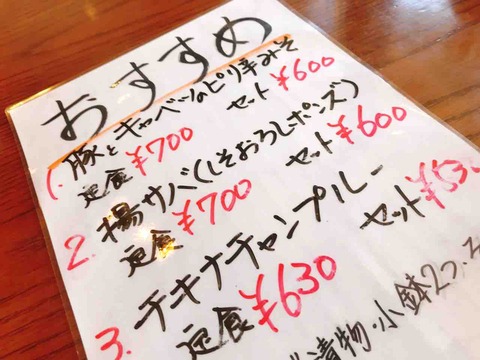 おすすめ
1. 豚とキャベツのピリ辛みそ
定食 ¥700 セット ¥600
2. 揚サバ(しそおろしポンズ)
定食 ¥700 セット ¥600
3. チキナチャンプルー
定食 ¥630 セット ¥53
漬物・小鉢2つ